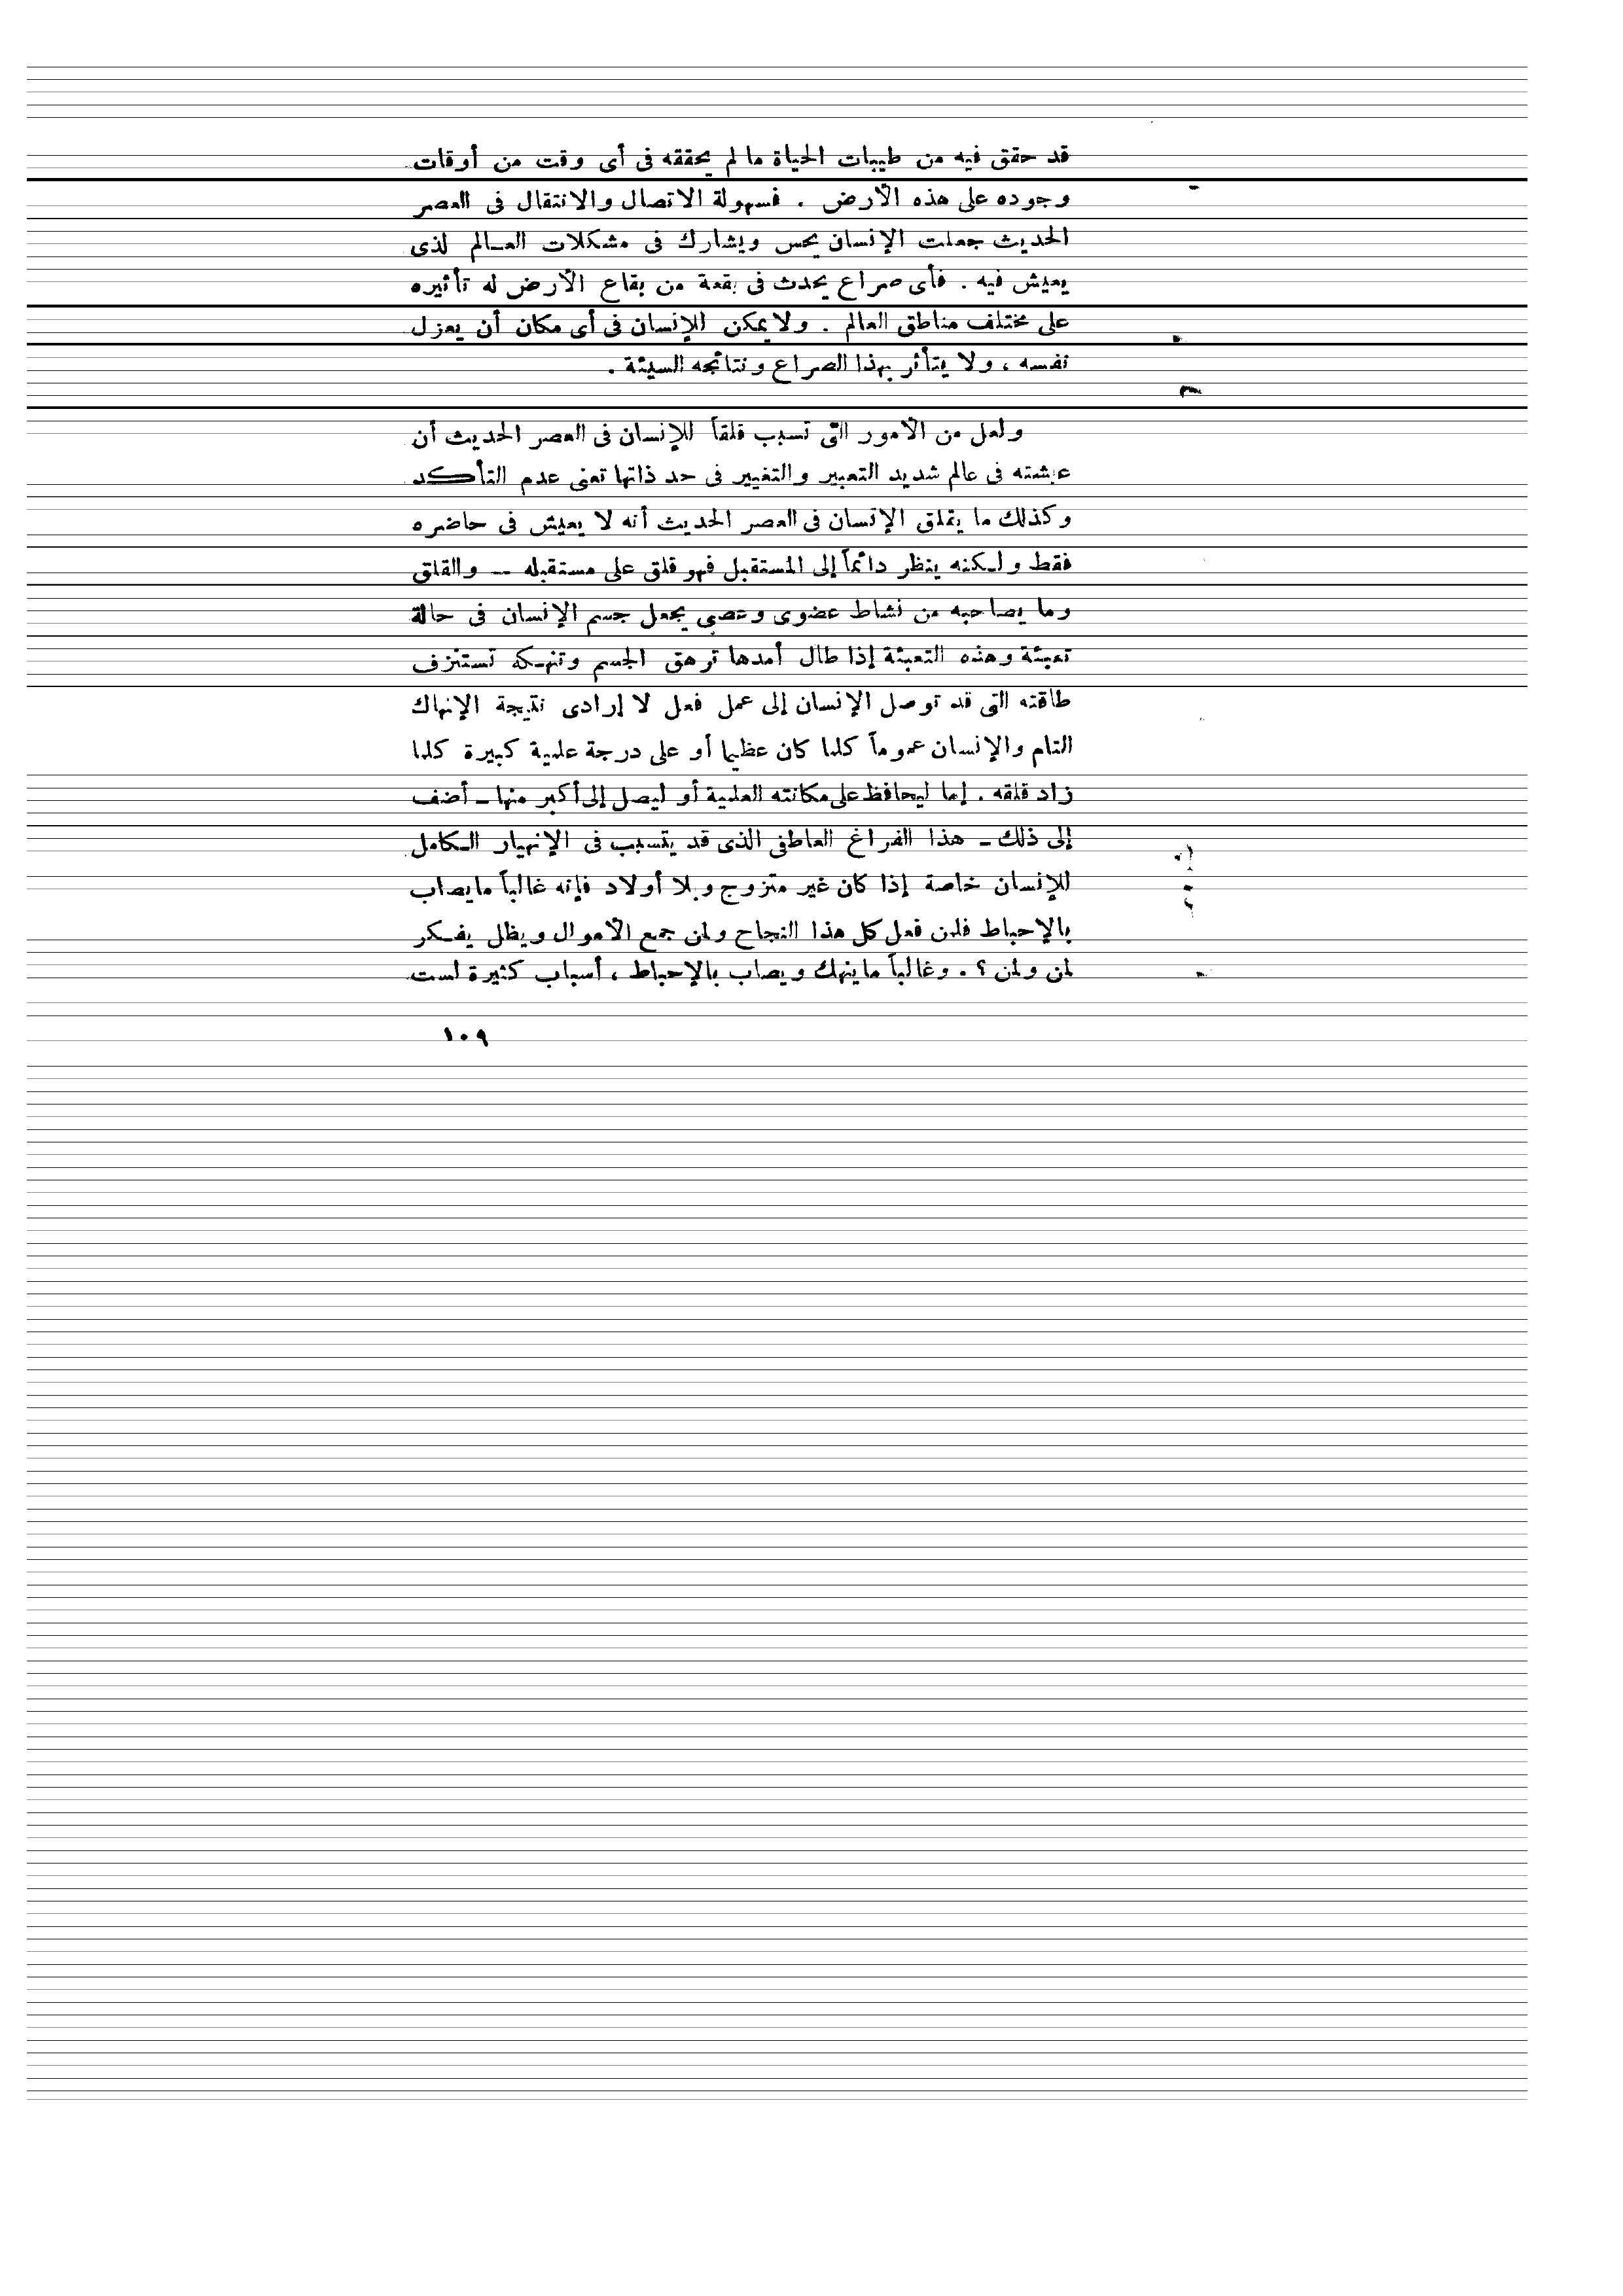 قد حقق فيه من طيبات الحياة ما لم يحققه فى أى وقت من أوقات
وجوده على هذه الأرض . فسهولة الاتصال والانتقال فى العصر
الحديث جعلت الإنسان يحس ويشارك فى مشكلات العالم لذى
يعيش فيه . فأى صراع يحدث فى بقعة من بقاع الأرض له تأثيره
على مختلف مناطق العالم . ولا يمكن للإنسان فى أى مكان أن يعزل
نفسه ، ولا يتأثر بهذا الصراع ونتائجه السيئة .
ولعل من الأمور التى تسبب قلقاً للإنسان فى العصر الحديث أن
عيشته فى عالم شديد التعبير والتغيير فى حد ذاتها تعنى عدم التأكد
وكذلك ما يقلق الإنسان فى العصر الحديث أنه لا يعيش فى حاضره
فقط ولكنه ينظر دائماً إلى المستقبل فهو قلق على مستقبله — والقلق
وما يصاحبه من نشاط عضوى وعصبى يجعل جسم الإنسان فى حالة
تعبئة وهذه التعبئة إذا طال أمدها ترهق الجسم وتنهكه تستنزف
طاقته التى قد توصل الإنسان إلى عمل فعل لا إرادى نتيجة الإنهاك
التام والإنسان عموماً كلما كان عظيما أو على درجة علمية كبيرة كلما
زاد قلقه . إما ليحافظ على مكانته العلمية أو ليصل إلى أكبر منها - أضف
إلى ذلك - هذا الفراغ العاطفى الذى قد يتسبب فى الإنهيار الكامل
للإنسان خاصة إذا كان غير متزوج وبلا أولاد فإنه غالباً ما يصاب
بالإحباط فلمن فعل كل هذا النجاح ولمن جمع الأموال ويظل يفكر
لمن ولمن ؟ . وغالباً ما ينهك ويصاب بالإحباط ، أسباب كثيرة لست
١٠٩